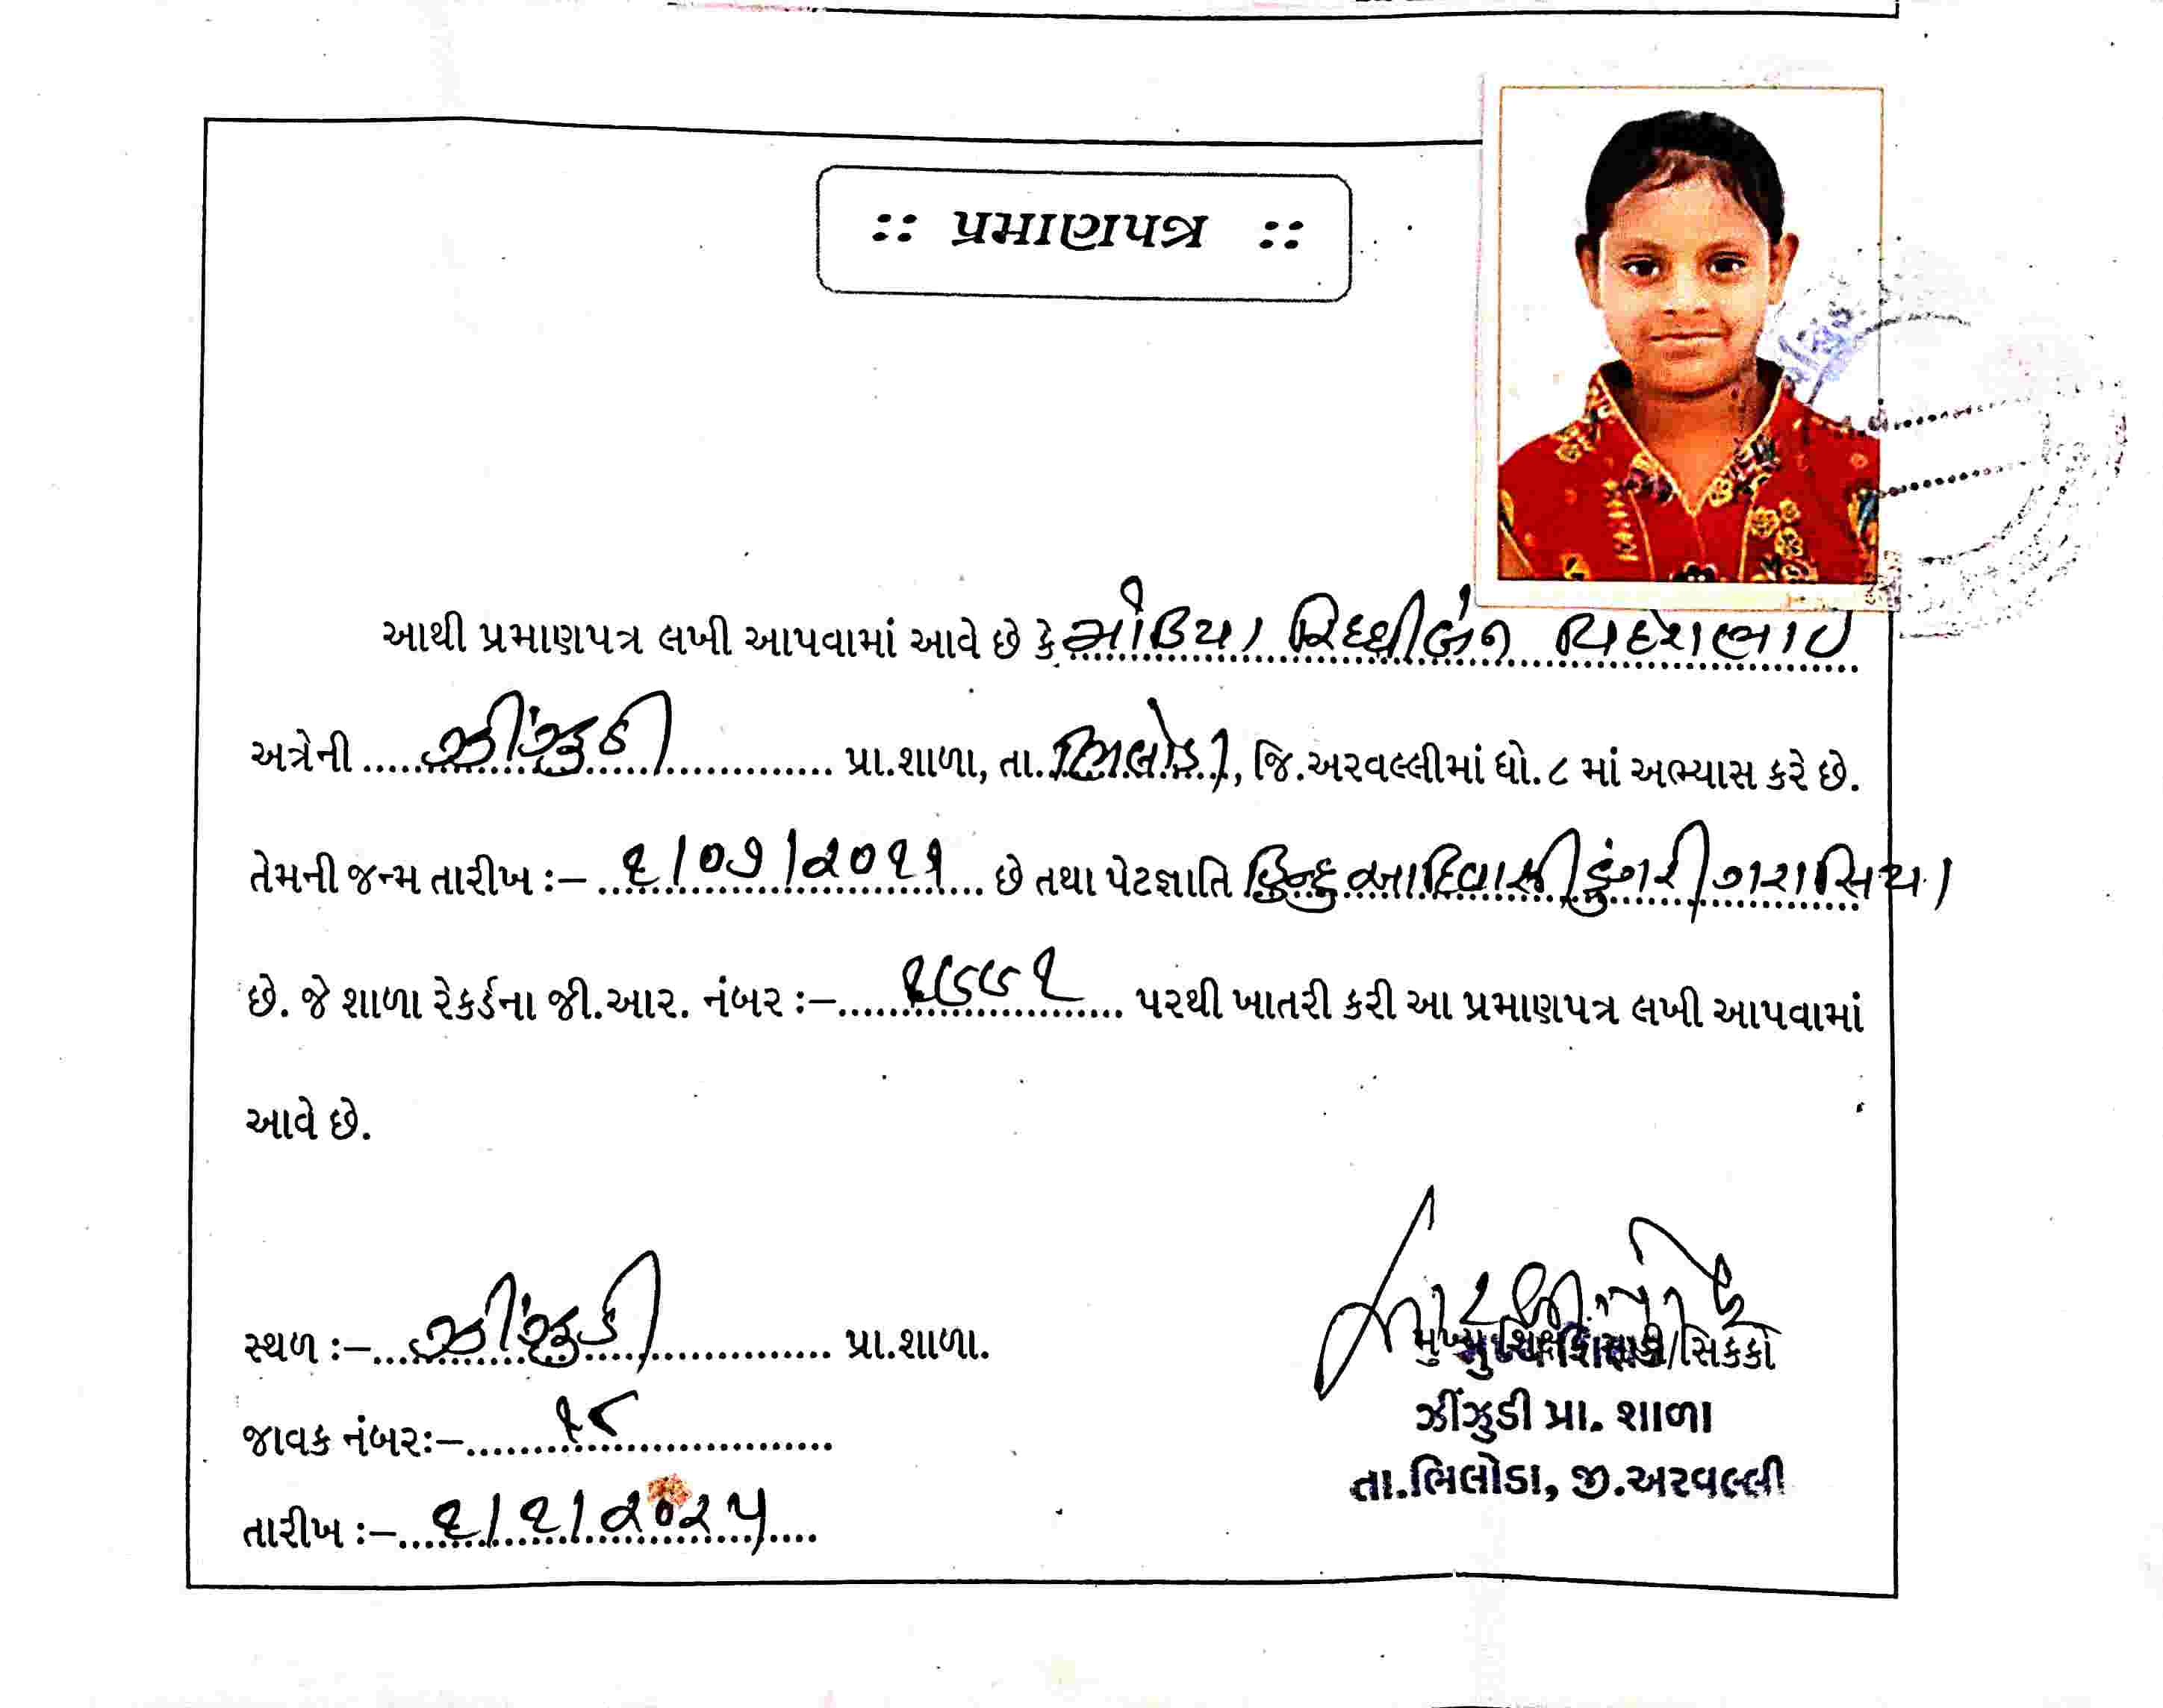 :: પ્રમાણપત્ર ::
આથી પ્રમાણપત્ર લખી આપવામાં આવે છે કે મોડિયા રિધ્ધીબેન
અત્રેની ઝીંઝુડી પ્રા.શાળા, તા. ભિલોડા, જિ.અરવલ્લીમાં ધો.૮ માં અભ્યાસ કરે છે.
તેમની જન્મ તારીખ :– ૬/૦૭/૨૦૧૧ છે તથા પેટજ્ઞાતિ હિન્દુ આદિવાસી ડુંગરી ગરાસિયા
છે. જે શાળા રેકર્ડના જી.આર. નંબર :– પરથી ખાતરી કરી આ પ્રમાણપત્ર લખી આપવામાં
આવે છે.
સ્થળ :– ઝીંઝુડી પ્રા.શાળા.
જાવક નંબર:– ૧૮
તારીખ :– ૬/૧/૨૦૨૫
ઝીંઝુડી પ્રા. શાળા
તા.ભિલોડા, જી.અરવલ્લી